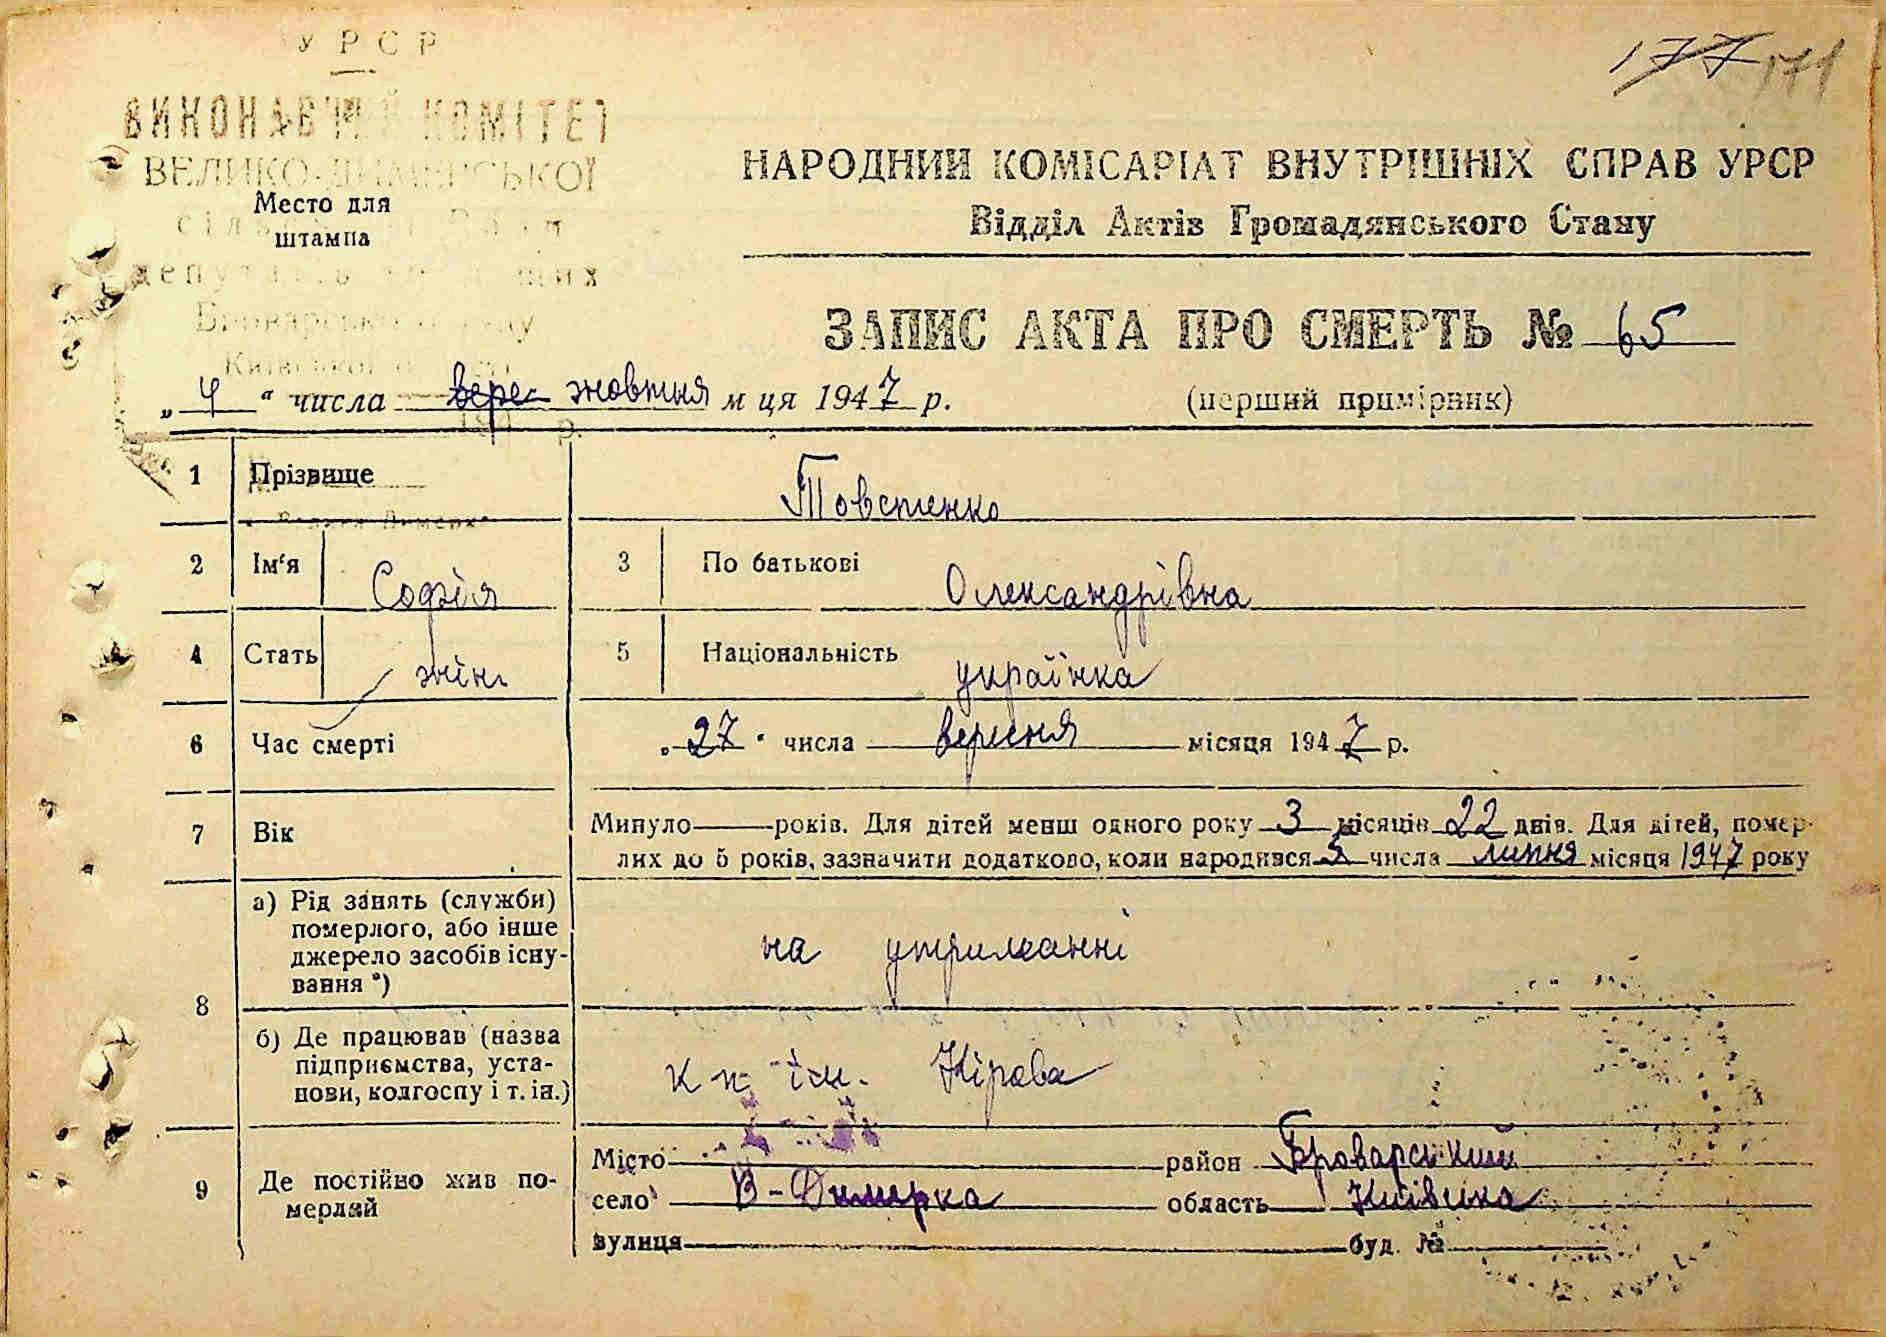 УРСР
ВИКОНАВЧИЙ КОМІТЕТ
ВЕЛИКО-ДИМЕРСЬКОЇ
Место для
штампа
177 171
НАРОДНИЙ КОМІСАРІАТ ВНУТРІШНІХ СПРАВ УРСР
Відділ Актів Громадянського Стану
ЗАПИС АКТА ПРО СМЕРТЬ № 65
„ 4 “ числа верес жовтня м ця 1947 р. (перший примірник)
1 Прізвище Товстенко
2 Ім‘я Софія 3 По батькові Олександрівна
4 Стать жін. 5 Національність українка
6 Час смерті „ 27 “ числа вересня місяця 1947 р.
7 Вік Минуло — років. Для дітей менш одного року 3 місяців 22 днів. Для дітей, помер-
лих до 5 років, зазначити додатково, коли народився 5 числа липня місяця 1947 року
8 а) Рід занять (служби)
померлого, або інше
джерело засобів існу-
вання *) на утриманні
б) Де працював (назва
підприємства, уста-
нови, колгоспу і т. ін.) ім. Кірова
9 Де постійно жив по-
мерлий
Місто район Броварський
село В-Димерка область Київська
вулиця буд. №